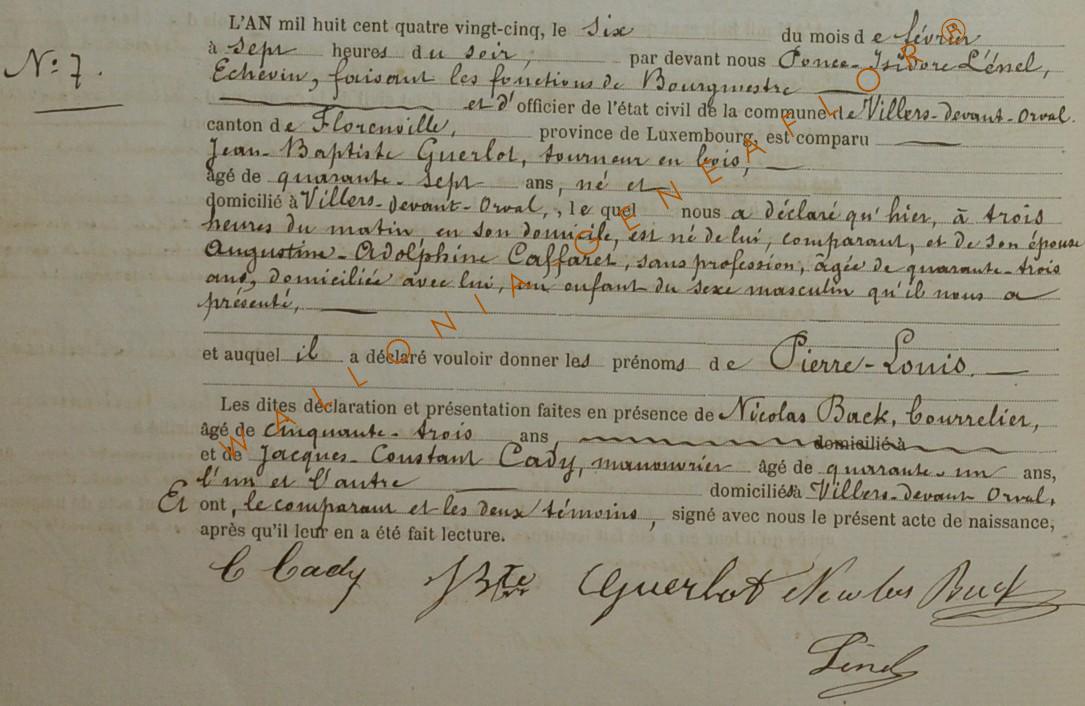 L'AN mil huit cent quatre vingt-cinq, le six du mois de février
N° 7.
à sept heures du soir, par devant nous Ponce-Isidore Lénel,
Echevin, faisant les fonctions de Bourgmestre
et d'officier de l'état civil de la commune de Villers-devant-Orval.
canton de Florenville, province de Luxembourg, est comparu
Jean-Baptiste Guerlot, tourneur en bois,
âgé de quarante-sept ans, né et
domicilié à Villers-devant-Orval, lequel nous a déclaré qu'hier, à trois
heures du matin en son domicile, est né de lui, comparant, et de son épouse
Augustine-Adolphine Caffaret, sans profession, âgée de quarante-trois
ans, domiciliée avec lui, un enfant du sexe masculin qu'il nous a
présenté,
et auquel il a déclaré vouloir donner les prénoms de Pierre-Louis
Les dites déclaration et présentation faites en présence de Nicolas Back, bourrelier,
âgé de cinquante-trois ans, domicilié à
et de Jacques-Constant Cady, manouvrier âgé de quarante-un ans,
l'un et l'autre domiciliés à Villers-devant-Orval,
Et ont, le comparant et les deux témoins, signé avec nous le présent acte de naissance,
après qu'il leur en a été fait lecture.
C Cady JBte Guerlot Nicolas Back
Lénel
WALLONIA © GENEAFLOR ®